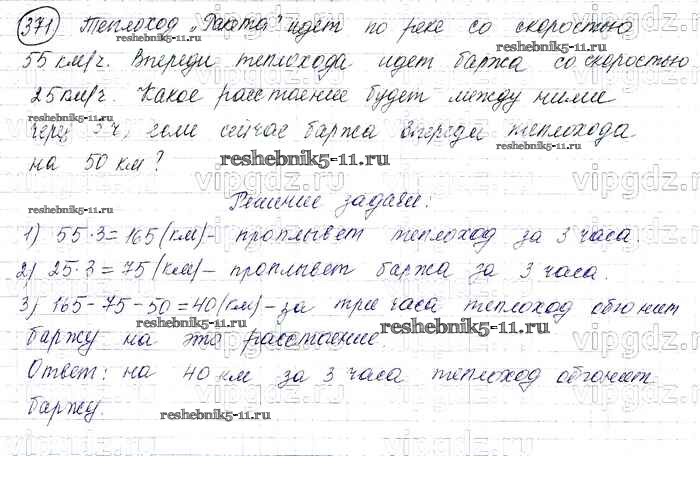 371 Теплоход „Ракета" идет по реке со скоростью
55 км/ч. Впереди теплохода идет баржа со скоростью
25 км/ч. Какое расстояние будет между ними
через 3 ч, если сейчас баржа впереди теплохода
на 50 км?
Решение задачи:
1) 55·3=165 (км) – проплывет теплоход за 3 часа.
2) 25·3=75 (км) – проплывет баржа за 3 часа.
3) 165-75-50=40 (км) – за три часа теплоход обгонит
баржу на это расстояние
Ответ: на 40 км за 3 часа теплоход обгонит
баржу.
reshebnik5-11.ru
reshebnik5-11.ru
reshebnik5-11.ru
reshebnik5-11.ru
reshebnik5-11.ru
reshebnik5-11.ru
reshebnik5-11.ru
reshebnik5-11.ru
vipgdz.ru
vipgdz.ru
vipgdz.ru
vipgdz.ru